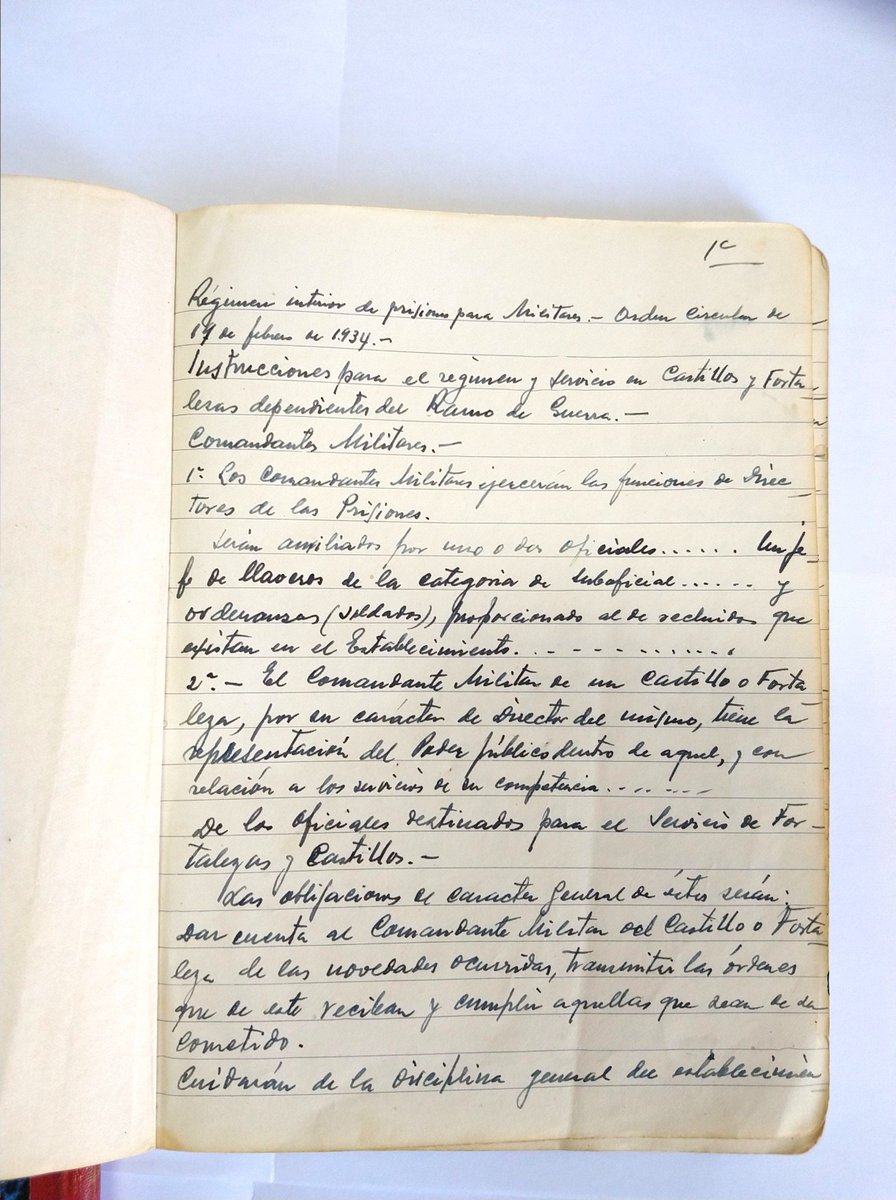 1ª
Régimen interior de prisiones para Militares.- Orden Circular de
19 de febrero de 1.934.-
Instrucciones para el régimen y servicio en Castillos y Forta-
lezas dependientes del Ramo de Guerra.-
Comandantes Militares.-
1ª Los Comandantes Militares ejercerán las funciones de Direc-
tores de las Prisiones.
Serán auxiliados por uno o dos oficiales...... Un je-
fe de llaveros de la categoria de suboficial...... y
ordenanzas (soldados), proporcionado al de recluidos que
existan en el Establecimiento. . - - - - . . . . . . .
2ª.- El Comandante Militar de un Castillo o Forta
leza, por su carácter de Director del mismo, tiene la
representación del Poder público dentro de aquel, y con
relación a los servicios de su competencia. . - . . . - -
De los oficiales destinados para el Servicio de For-
talezas y Castillos.-
Las obligaciones de caracter general de éstos serán:
Dar cuenta al Comandante Militar del Castillo o Forta
leza de las novedades ocurridas, transmitir las órdenes
que de este reciban y cumplir aquellas que sean de su
cometido.
Cuidarán de la disciplina general del establecimien